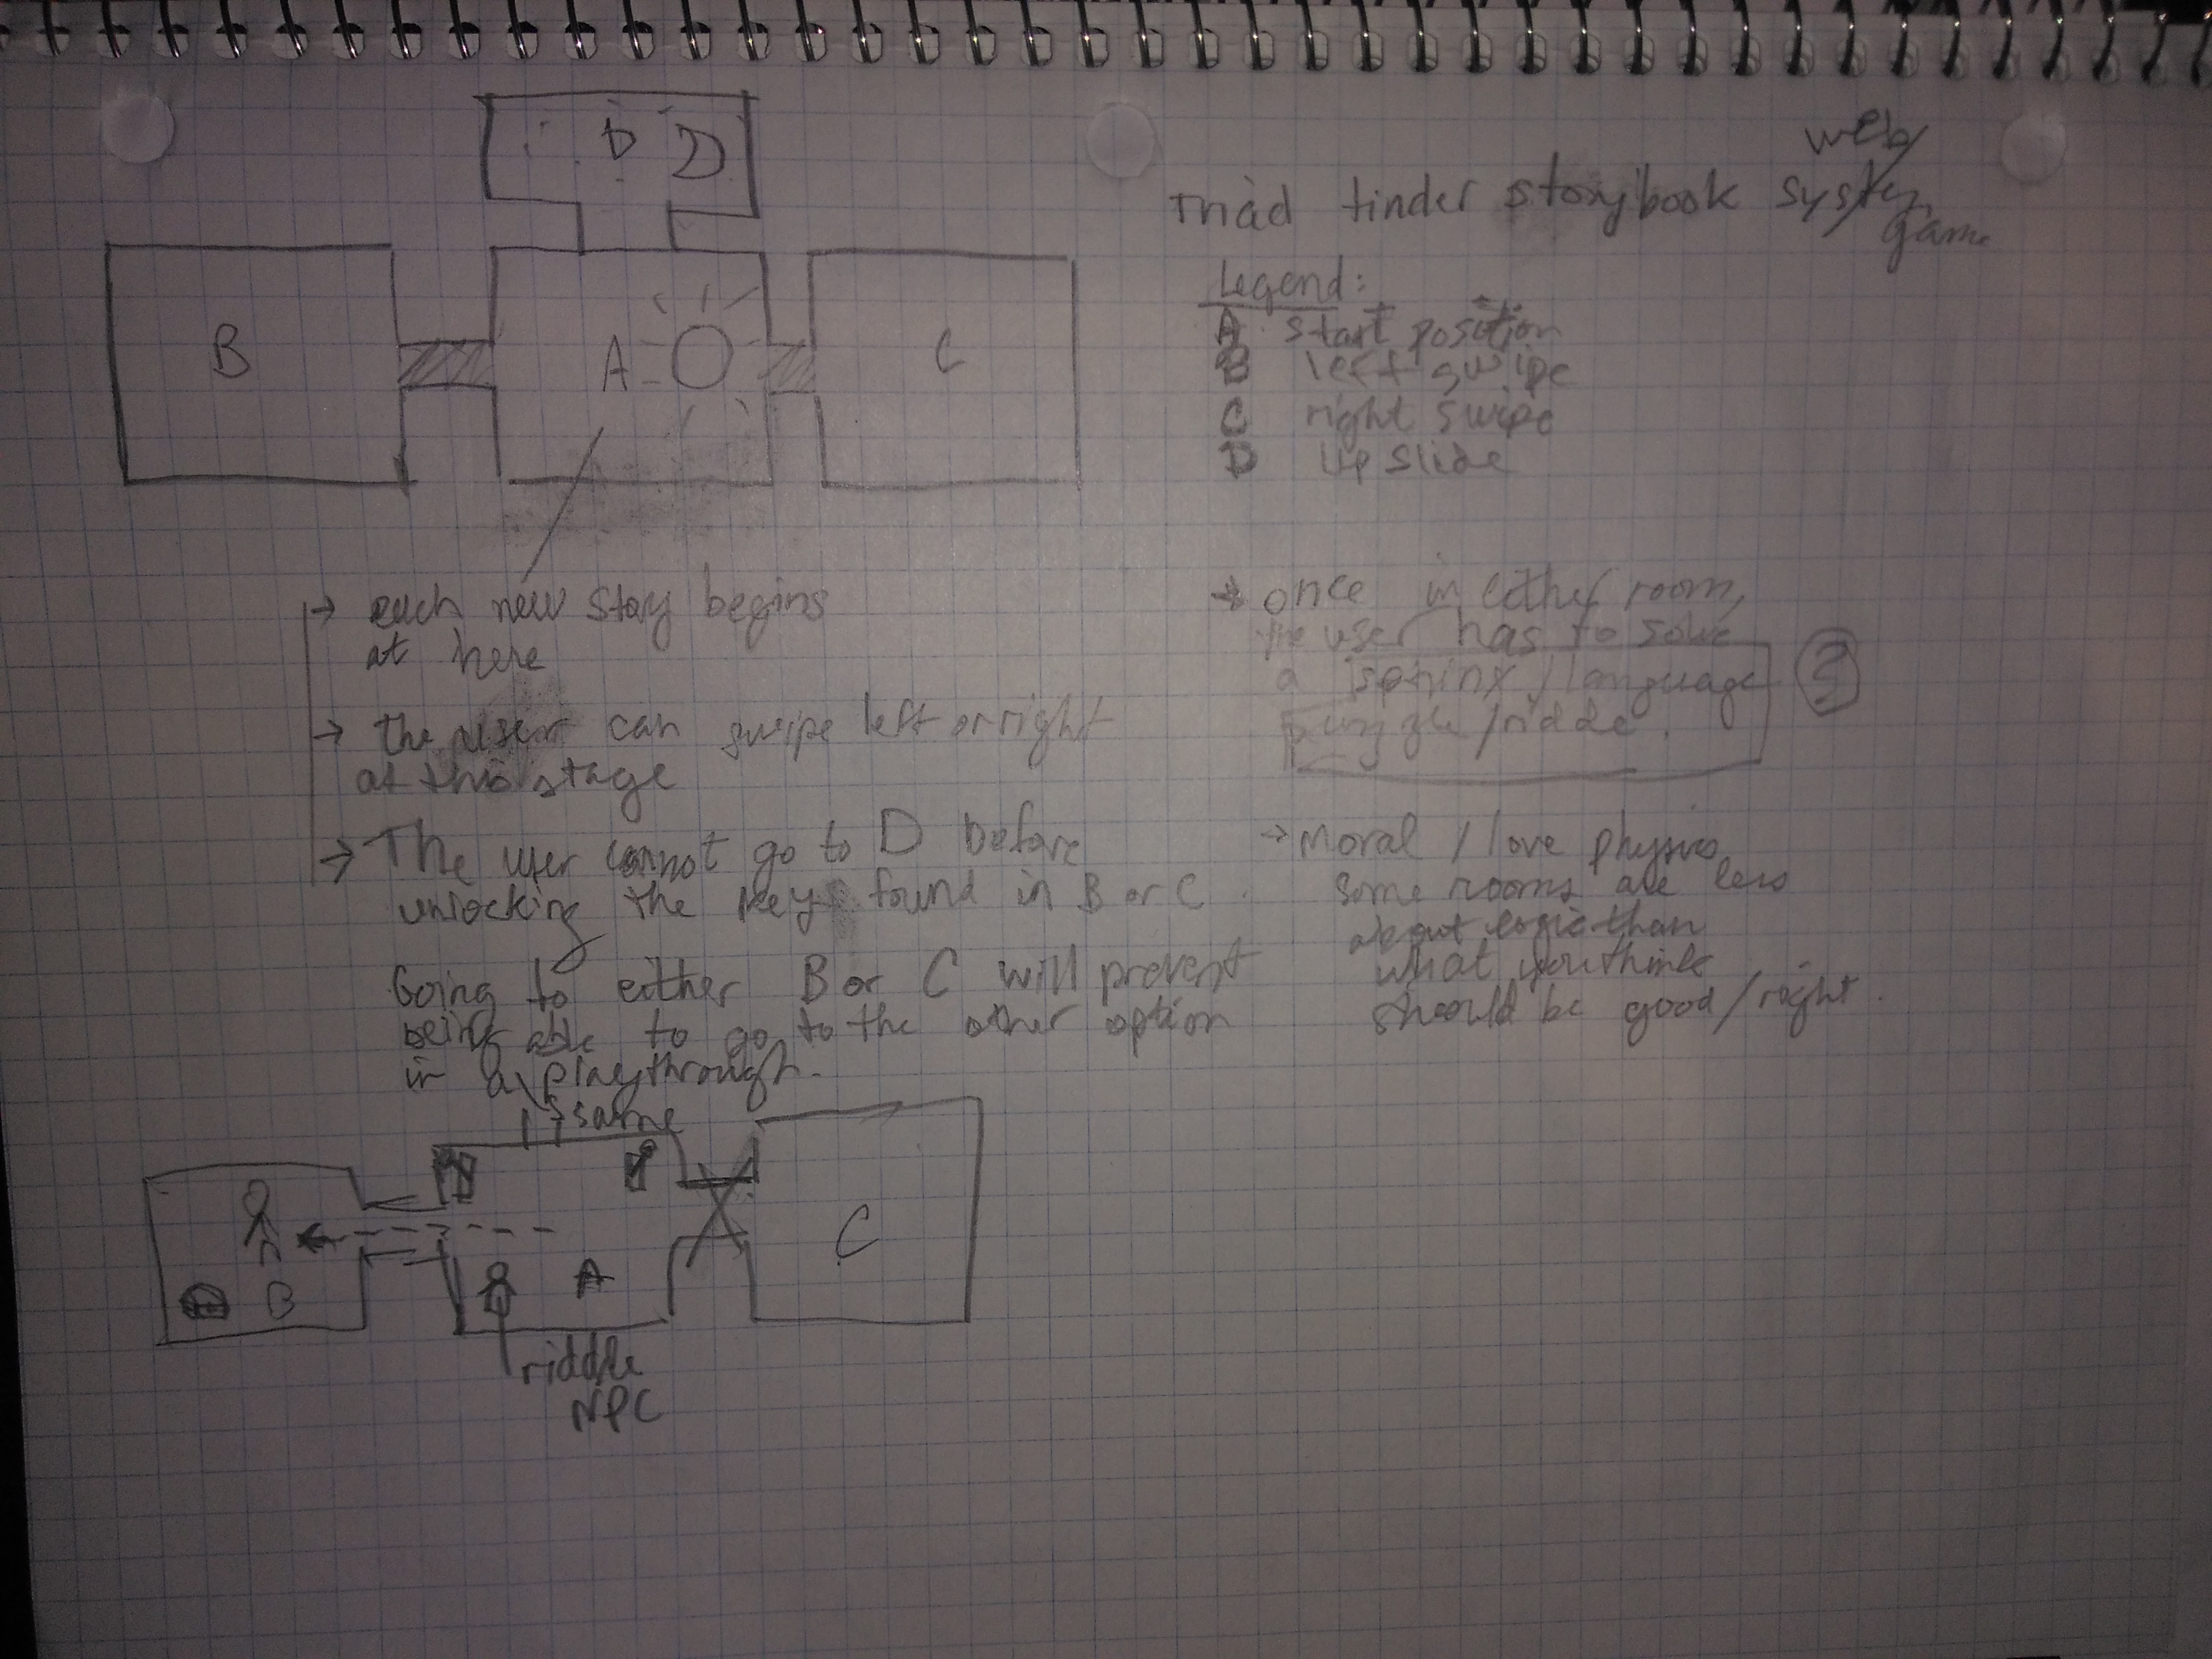 D
B
A
C
web
Triad tinder storybook system
game
Legend:
A start position
B left swipe
C right swipe
D up slide
→ each new story begins
at here
→ the user can swipe left or right
at this stage
→ The user cannot go to D before
unlocking the keys found in B or C.
Going to either B or C will prevent
being able to go to the other option
in a playthrough.
same
→ once in either room,
the user has to solve
a sphinx / language
puzzle / riddle.
?
→ Moral / love physics
some rooms are less
about logic than
what you think
should be good / right.
B
A
C
riddle
NPC